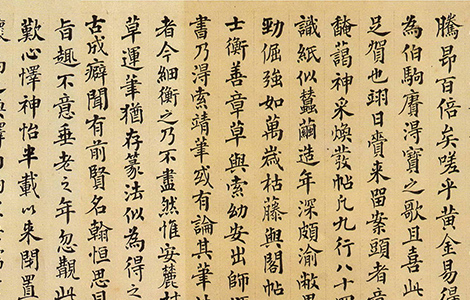 騰昂百倍矣嗟乎黃金易得
為伯駒賡得寶之歌且喜此
足賀也翊日賚來留案頭者
馣藹神采煥發帖凡九行八十四
識紙似蠶繭造年深頗渝敝
勁倔強如萬歲枯藤與閣帖
士衡善章草與索幼安出師
書乃得索靖筆或有論其筆法
者今細衡之乃不盡然惟安麓村
草運筆猶存篆法似為得之
古成癖聞有前賢名翰恒思
旨趣不意垂老之年忽覩此
歎心懌神怡半載以來閉置